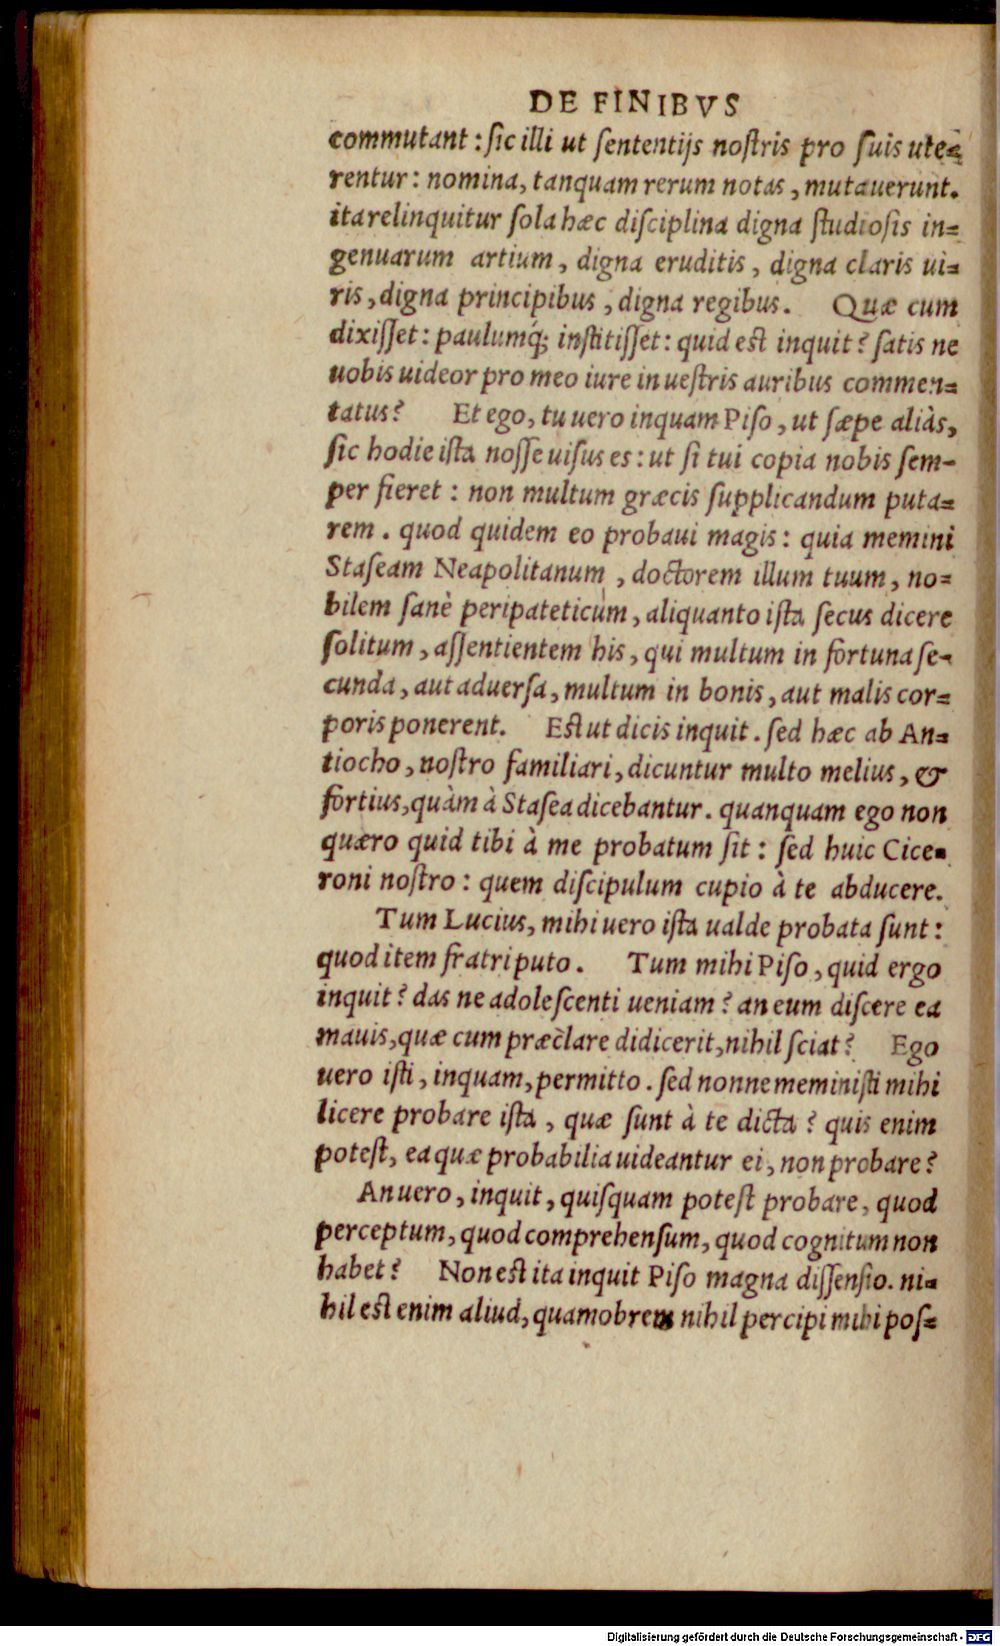 DE FINIBVS
commutant : ſic illi ut ſententijs noſtris pro ſuis ute=
rentur : nomina, tanquam rerum notas, mutauerunt.
ita relinquitur ſola hæc diſciplina digna ſtudioſis in=
genuarum artium, digna eruditis, digna claris ui=
ris, digna principibus, digna regibus. Quæ cum
dixiſſet : paulumq́; inſtitiſſet : quid est inquit? ſatis ne
uobis uideor pro meo iure in ueſtris auribus commen=
tatus? Et ego, tu uero inquam Piſo, ut ſæpe aliàs,
ſic hodie iſta noſſe uiſus es : ut ſi tui copia nobis ſem-
per fieret : non multum græcis ſupplicandum puta=
rem. quod quidem eo probaui magis : quia memini
Staſeam Neapolitanum, doctorem illum tuum, no=
bilem ſanè peripateticum, aliquanto iſta ſecus dicere
ſolitum, aſſentientem his, qui multum in fortuna ſe-
cunda, aut aduerſa, multum in bonis, aut malis cor=
poris ponerent. Eſt ut dicis inquit. ſed hæc ab An=
tiocho, noſtro familiari, dicuntur multo melius, &
fortius, quàm à Staſea dicebantur. quanquam ego non
quæro quid tibi à me probatum ſit : ſed huic Cice=
roni noſtro : quem diſcipulum cupio à te abducere.
Tum Lucius, mihi uero iſta ualde probata ſunt :
quod item fratri puto. Tum mihi Piſo, quid ergo
inquit? das ne adoleſcenti ueniam? an eum diſcere ea
mauis, quæ cum præclare didicerit, nihil ſciat? Ego
uero iſti, inquam, permitto. ſed nonne meminiſti mihi
licere probare iſta, quæ ſunt à te dicta? quis enim
poteſt, ea quæ probabilia uideantur ei, non probare?
An uero, inquit, quiſquam poteſt probare, quod
perceptum, quod comprehenſum, quod cognitum non
habet? Non eſt ita inquit Piſo magna diſſenſio. ni=
hil eſt enim aliud, quamobrem nihil percipi mihi poſ=
Digitalisierung gefördert durch die Deutsche Forschungsgemeinschaft - DFG